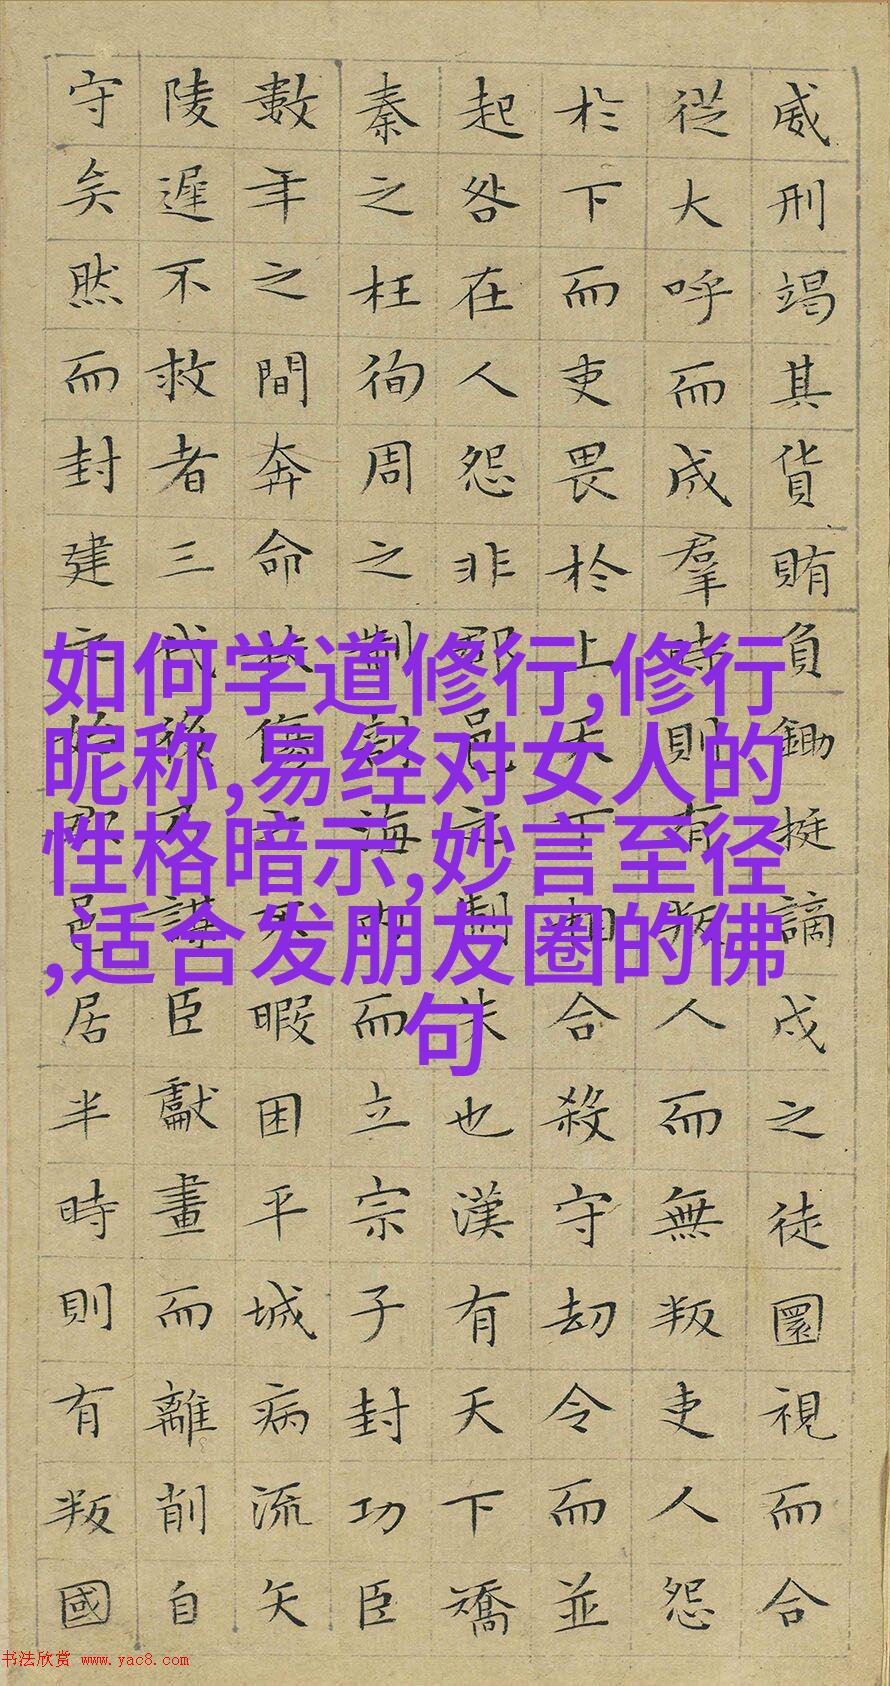 威刑竭其貨賄負鋤梃謫戍之徒圜視而合
從大呼而成羣時則有叛人而無叛吏人怨
於下而吏畏於上天下相合殺守劫令而並
起咎在人怨非郡邑之制失也漢有天下矯
秦之枉徇周之制剖海內而立宗子封功臣
數年之間奔命扶傷之不暇困平城病流矢
陵遲不救者三代後乃謀臣獻畫而離削自
守矣然而封建之始郡邑居半時則有叛國
如何学道修行,修行
昵称,易经对女人的
性格暗示,妙言至径
,适合发朋友圈的佛
句
书法欣赏 www.yac8.com